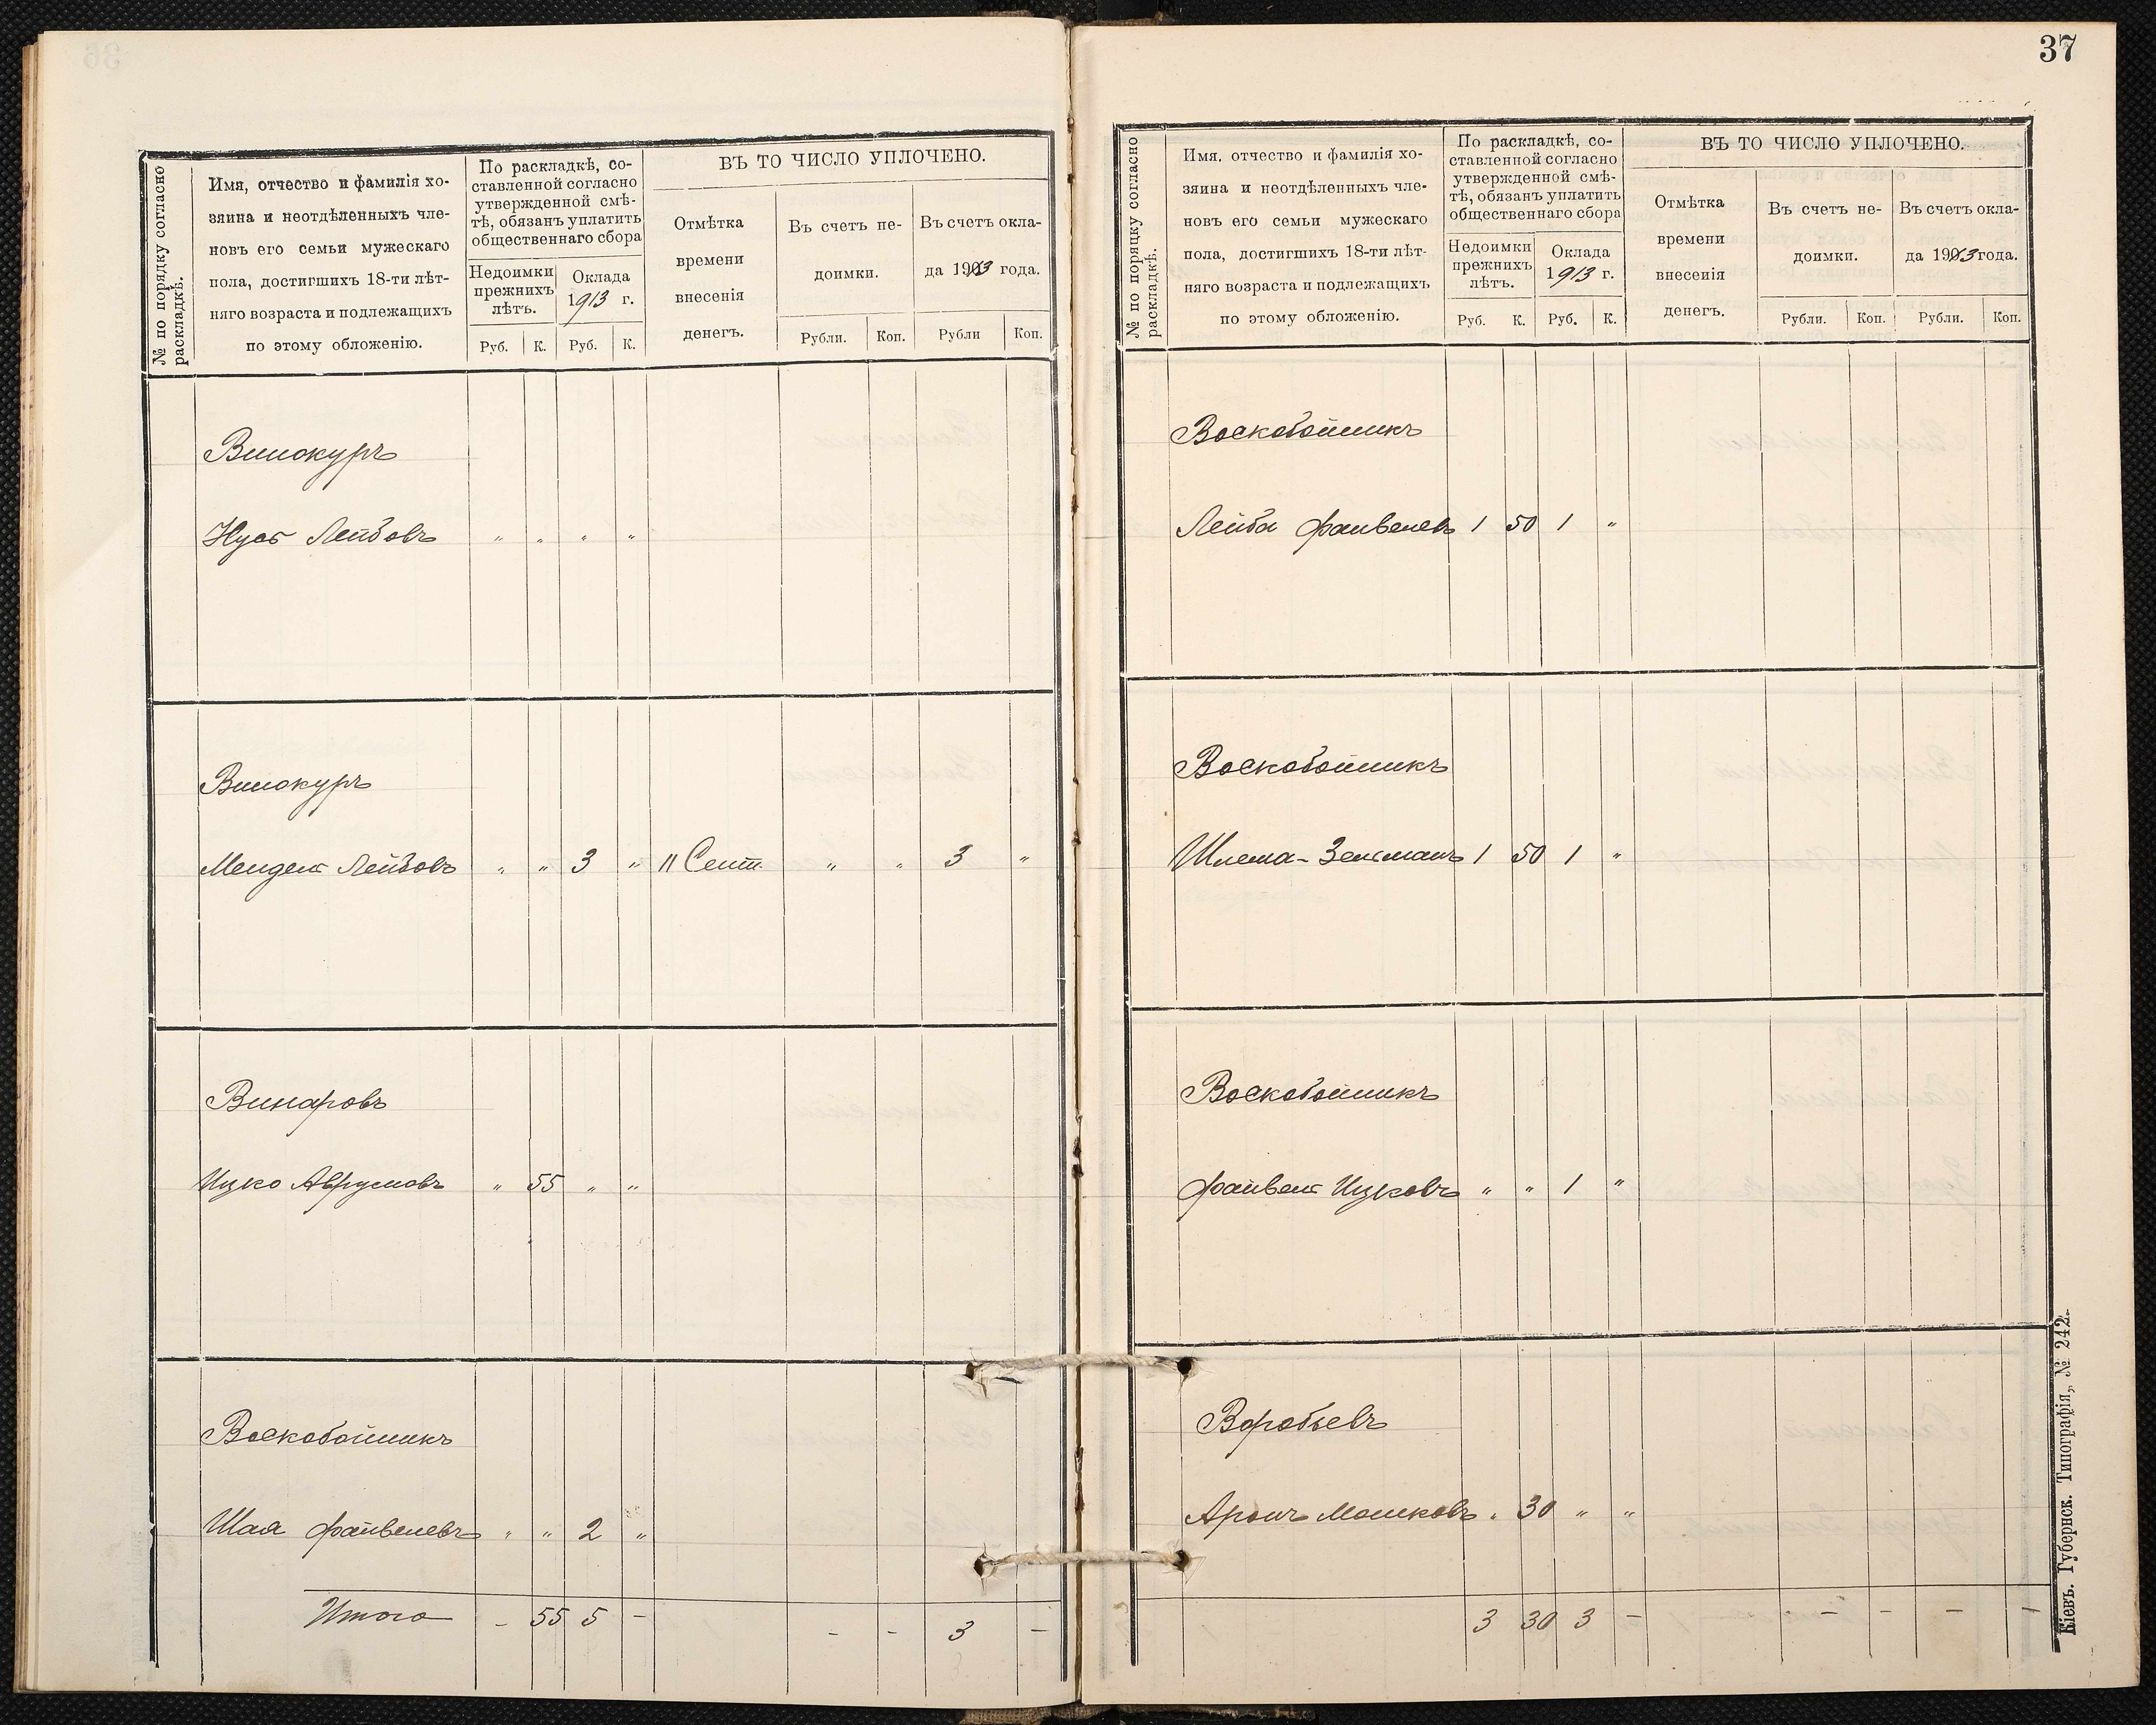 № по порядку согласно
раскладкѣ.
Имя, отчество и фамилія хо-
зяина и неотдѣленныхъ чле-
новъ его семьи мужескаго
пола, достигшихъ 18-ти лѣт-
няго возраста и подлежащихъ
по этому обложенію.
По раскладкѣ, со-
ставленной согласно
утвержденной смѣ-
тѣ, обязанъ уплатить
общественнаго сбора
Недоимки
прежнихъ
лѣтъ.
Оклада
1913 г.
Руб. К. Руб. К.
ВЪ ТО ЧИСЛО УПЛОЧЕНО.
Отмѣтка
времени
внесенія
денегъ.
Въ счетъ не-
доимки.
Въ счетъ окла-
да 1913 года.
Рубли. Коп. Рубли Коп.
Винокуръ
Лейбовъ " " " "
Винокуръ
Мендель Лейбовъ " " 3 " 11 Сент. " " 3 "
Винаровъ
Ицко Аврумовъ " 55 " "
Воскобойникъ
Шая Файвелевъ " " 2 "
Итого - 55 5 - - - 3 -
37
№ по порядку согласно
раскладкѣ.
Имя, отчество и фамилія хо-
зяина и неотдѣленныхъ чле-
новъ его семьи мужескаго
пола, достигшихъ 18-ти лѣт-
няго возраста и подлежащихъ
по этому обложенію.
По раскладкѣ, со-
ставленной согласно
утвержденной смѣ-
тѣ, обязанъ уплатить
общественнаго сбора
Недоимки
прежнихъ
лѣтъ.
Оклада
1913 г.
Руб. К. Руб. К.
ВЪ ТО ЧИСЛО УПЛОЧЕНО.
Отмѣтка
времени
внесенія
денегъ.
Въ счетъ не-
доимки.
Въ счетъ окла-
да 1913 года.
Рубли. Коп. Рубли. Коп.
Воскобойникъ
Лейба Файвелевъ 1 50 1 "
Воскобойникъ
Шлема-Зельманъ 1 50 1 "
Воскобойникъ
Файвель Ицковъ " " 1 "
Воробьевъ
Аронъ Мошковъ " 30 " "
3 30 3 - - - - -
Кіевъ. Губернск. Типографія,, № 242.